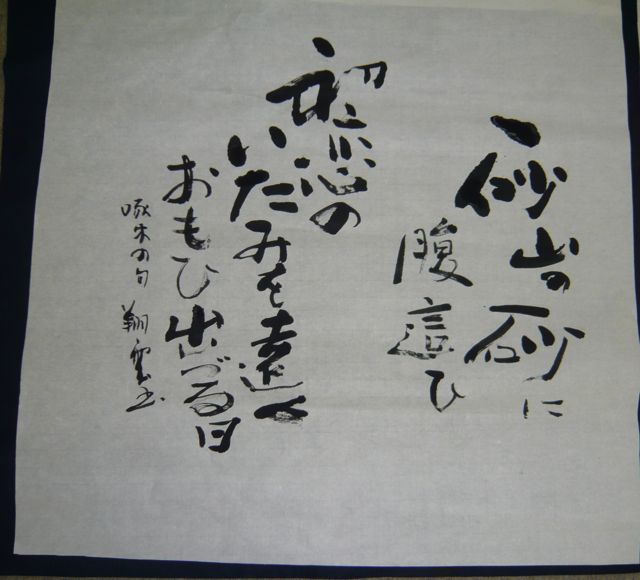 砂山の砂に
腹這ひ
初恋の
いたみを遠く
おもひ出づる日
啄木の句 翔雲書